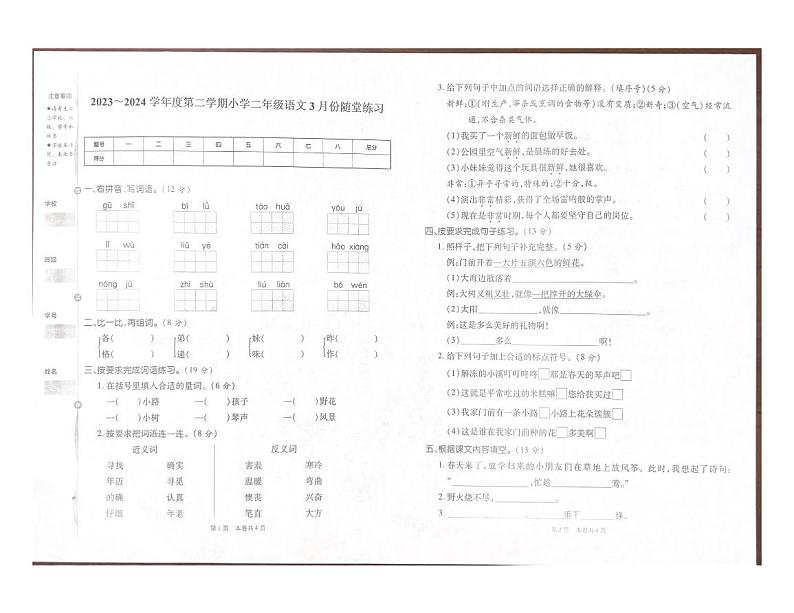 注意事项
2023～2024 学年度第二学期小学二年级语文 3 月份随堂练习
题号 一 二 三 四 五 六 七 八 总分
得分
学校
班级
学号
姓名
一、看拼音,写词语。(12 分)
gū shī bì lǜ táo huā yóu jú
lǐ wù liǔ yè tián cài hǎo xiàng
nóng jù zhí shù liú liàn bō wén
二、比一比,再组词。(8 分)
各( ) 弟( ) 妹( ) 昨( )
格( ) 递( ) 味( ) 作( )
三、按要求完成词语练习。(19 分)
1. 在括号里填入合适的量词。(6 分)
一( )小路 一( )孩子 一( )野花
一( )小树 一( )琴声 一( )风景
2. 按要求把词语连一连。(8 分)
近义词 反义词
寻找 确实 害羞 寒冷
年迈 寻觅 温暖 弯曲
的确 认真 懊丧 兴奋
仔细 年老 笔直 大方
第 1 页 本卷共 4 页
3. 给下列句子中加点的词语选择正确的解释。(填序号)(5 分)
新鲜:①(刚生产,宰杀或烹调的食物等)没有变质;②新奇;③(空气)经常流
通,不含杂类气体。
(1)我买了一个新鲜的面包做早饭。 ( )
(2)公园里空气新鲜,是晨练的好去处。 ( )
(3)小妹妹觉得这个玩具很新鲜,她很喜欢。 ( )
非常:①异乎寻常的,特殊的;②十分,极。
(4)演出非常精彩,获得了全场雷鸣般的掌声。 ( )
(5)现在是非常时期,每个人都要坚守自己的岗位。 ( )
四、按要求完成句子练习。(13 分)
1. 照样子,把下列句子补充完整。(5 分)
例:门前开着一大片五颜六色的鲜花。
(1)大海边散落着 。
例:大树又粗又壮,就像一把撑开的大绿伞。
(2)太阳 ,就像 。
例:这是多么美好的礼物啊!
(3) 多么 啊!
2. 给下列句子加上合适的标点符号。(8 分)
(1)解冻的小溪叮叮咚咚□那是春天的琴声吧□
(2)这就是平常吃过的米糕嘛□您给我买过□
(3)我家门前有一条小路□小路上花朵簇簇□
(4)这是谁在我家门前种的花□多美啊□
五、根据课文内容填空。(13 分)
1. 春天来了,放学归来的小朋友们在草地上放风筝。此时,我想起了诗句:
“ ,忙趁 鸢。”
2. 野火烧不尽, 。
3. , 垂下 绦。
第 2 页 本卷共 4 页